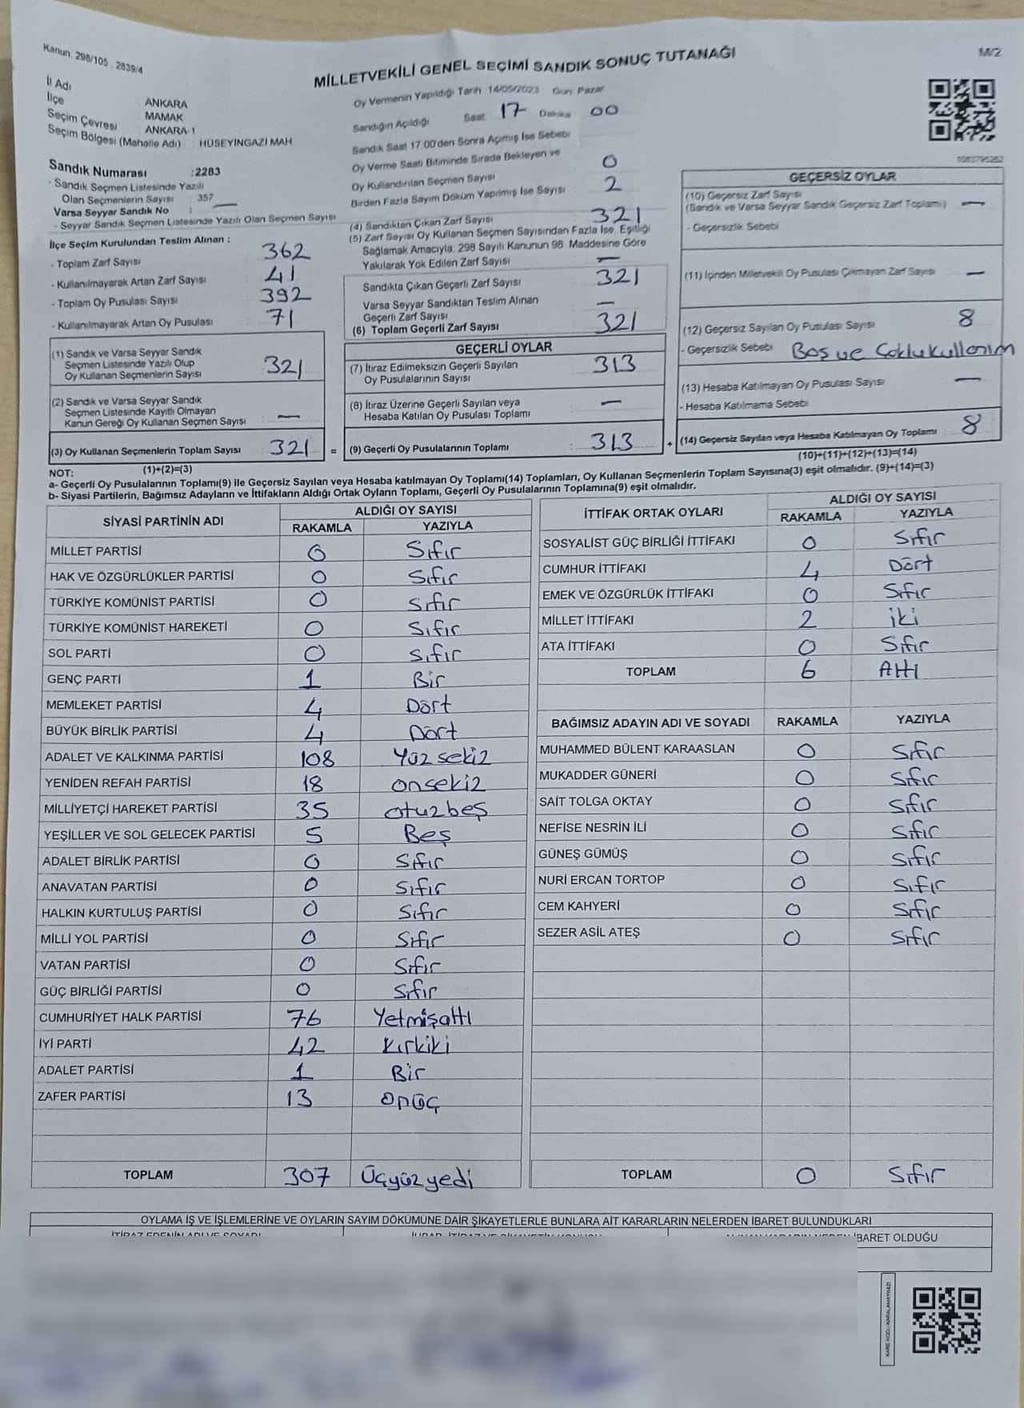 Kanun: 298/105 - 2839/4
M/2
MİLLETVEKİLİ GENEL SEÇİMİ SANDIK SONUÇ TUTANAĞI
İl Adı ANKARA
İlçe MAMAK
Seçim Çevresi ANKARA-1
Seçim Bölgesi (Mahalle Adı) : HÜSEYİNGAZİ MAH
Oy Vermenin Yapıldığı Tarih 14/05/2023 Gün: Pazar
Sandığın Açıldığı Saat 17 Dakika 00
Sandık Saat 17.00'den Sonra Açılmış İse Sebebi
Oy Verme Saati Bitiminde Sırada Bekleyen ve
Oy Kullandırılan Seçmen Sayısı 0
Birden Fazla Sayım Döküm Yapılmış İse Sayısı 2
Sandık Numarası : 2283
- Sandık Seçmen Listesinde Yazılı
Olan Seçmenlerin Sayısı 357
Varsa Seyyar Sandık No : —
- Seyyar Sandık Seçmen Listesinde Yazılı Olan Seçmen Sayısı
İlçe Seçim Kurulundan Teslim Alınan :
- Toplam Zarf Sayısı 362
- Kullanılmayarak Artan Zarf Sayısı 41
- Toplam Oy Pusulası Sayısı 392
- Kullanılmayarak Artan Oy Pusulası 71
(1) Sandık ve Varsa Seyyar Sandık
Seçmen Listesinde Yazılı Olup
Oy Kullanan Seçmenlerin Sayısı 321
(2) Sandık ve Varsa Seyyar Sandık
Seçmen Listesinde Kayıtlı Olmayan
Kanun Gereği Oy Kullanan Seçmen Sayısı —
(3) Oy Kullanan Seçmenlerin Toplam Sayısı 321 =
(1)+(2)=(3)
(4) Sandıktan Çıkan Zarf Sayısı 321
(5) Zarf Sayısı Oy Kullanan Seçmen Sayısından Fazla İse, Eşitliği
Sağlamak Amacıyla, 298 Sayılı Kanunun 98. Maddesine Göre
Yakılarak Yok Edilen Zarf Sayısı —
Sandıkta Çıkan Geçerli Zarf Sayısı 321
Varsa Seyyar Sandıktan Teslim Alınan
Geçerli Zarf Sayısı —
(6) Toplam Geçerli Zarf Sayısı 321
GEÇERLİ OYLAR
(7) İtiraz Edilmeksizin Geçerli Sayılan
Oy Pusulalarının Sayısı 313
(8) İtiraz Üzerine Geçerli Sayılan veya
Hesaba Katılan Oy Pusulası Toplamı —
(9) Geçerli Oy Pusulalarının Toplamı 313 +
GEÇERSİZ OYLAR
(10) Geçersiz Zarf Sayısı
(Sandık ve Varsa Seyyar Sandık Geçersiz Zarf Toplamı) —
- Geçersizlik Sebebi
(11) İçinden Milletvekili Oy Pusulası Çıkmayan Zarf Sayısı —
(12) Geçersiz Sayılan Oy Pusulası Sayısı 8
- Geçersizlik Sebebi Boş ve Çoklu kullanım
(13) Hesaba Katılmayan Oy Pusulası Sayısı —
- Hesaba Katılmama Sebebi
(14) Geçersiz Sayılan veya Hesaba Katılmayan Oy Toplamı 8
(10)+(11)+(12)+(13)=(14)
NOT:
a- Geçerli Oy Pusulalarının Toplamı(9) ile Geçersiz Sayılan veya Hesaba katılmayan Oy Toplamı(14) Toplamları, Oy Kullanan Seçmenlerin Toplam Sayısına(3) eşit olmalıdır. (9)+(14)=(3)
b- Siyasi Partilerin, Bağımsız Adayların ve İttifakların Aldığı Ortak Oyların Toplamı, Geçerli Oy Pusulalarının Toplamına(9) eşit olmalıdır.
SİYASİ PARTİNİN ADI ALDIĞI OY SAYISI
RAKAMLA YAZIYLA
MİLLET PARTİSİ 0 Sıfır
HAK VE ÖZGÜRLÜKLER PARTİSİ 0 Sıfır
TÜRKİYE KOMÜNİST PARTİSİ 0 Sıfır
TÜRKİYE KOMÜNİST HAREKETİ 0 Sıfır
SOL PARTİ 0 Sıfır
GENÇ PARTİ 1 Bir
MEMLEKET PARTİSİ 4 Dört
BÜYÜK BİRLİK PARTİSİ 4 Dört
ADALET VE KALKINMA PARTİSİ 108 Yüz sekiz
YENİDEN REFAH PARTİSİ 18 onsekiz
MİLLİYETÇİ HAREKET PARTİSİ 35 otuzbeş
YEŞİLLER VE SOL GELECEK PARTİSİ 5 Beş
ADALET BİRLİK PARTİSİ 0 Sıfır
ANAVATAN PARTİSİ 0 Sıfır
HALKIN KURTULUŞ PARTİSİ 0 Sıfır
MİLLİ YOL PARTİSİ 0 Sıfır
VATAN PARTİSİ 0 Sıfır
GÜÇ BİRLİĞİ PARTİSİ 0 Sıfır
CUMHURİYET HALK PARTİSİ 76 Yetmişaltı
İYİ PARTİ 42 Kırkiki
ADALET PARTİSİ 1 Bir
ZAFER PARTİSİ 13 onüç
TOPLAM 307 Üçyüz yedi
İTTİFAK ORTAK OYLARI ALDIĞI OY SAYISI
RAKAMLA YAZIYLA
SOSYALİST GÜÇ BİRLİĞİ İTTİFAKI 0 Sıfır
CUMHUR İTTİFAKI 4 Dört
EMEK VE ÖZGÜRLÜK İTTİFAKI 0 Sıfır
MİLLET İTTİFAKI 2 iki
ATA İTTİFAKI 0 Sıfır
TOPLAM 6 Altı
BAĞIMSIZ ADAYIN ADI VE SOYADI RAKAMLA YAZIYLA
MUHAMMED BÜLENT KARAASLAN 0 Sıfır
MUKADDER GÜNERİ 0 Sıfır
SAİT TOLGA OKTAY 0 Sıfır
NEFİSE NESRİN İLİ 0 Sıfır
GÜNEŞ GÜMÜŞ 0 Sıfır
NURİ ERCAN TORTOP 0 Sıfır
CEM KAHYERİ 0 Sıfır
SEZER ASİL ATEŞ 0 Sıfır
TOPLAM 0 Sıfır
OYLAMA İŞ VE İŞLEMLERİNE VE OYLARIN SAYIM DÖKÜMÜNE DAİR ŞİKAYETLERLE BUNLARA AİT KARARLARIN NELERDEN İBARET BULUNDUKLARI
İTİRAZ EDENİN ADI VE SOYADI
İBARET OLDUĞU